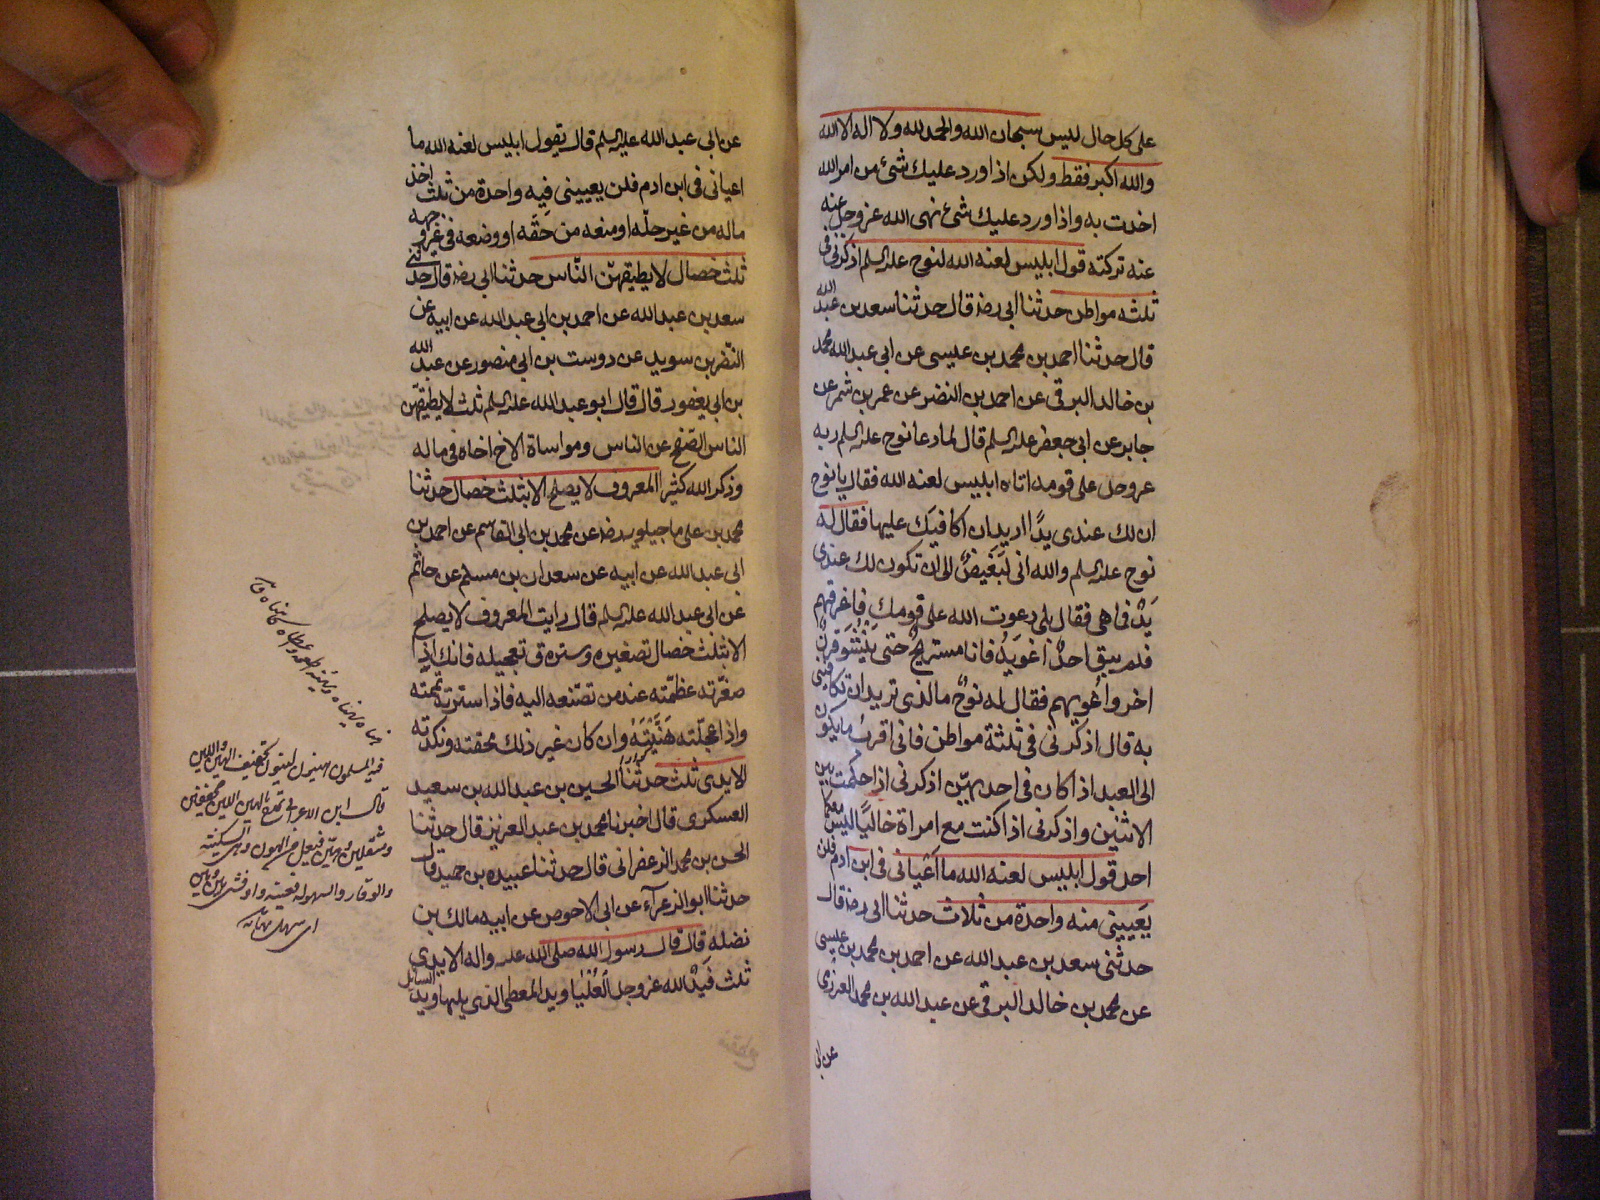 على كل حال ليس سبحان الله والحمد لله ولا اله الا الله
والله اكبر فقط ولكن اذا ورد عليك شئ من امر الله
اخذت به واذا ورد عليك شئ نهى الله عز وجل عنه
عنه تركته قول ابليس لعنه الله لنوح عليه السلم اذكرنى فى
ثلثه مواطن حدثنا ابى رضه قال حدثنا سعد بن عبد الله
قال حدثنا احمد بن محمد بن عيسى عن ابى عبد الله محمد
بن خالد البرقى عن احمد بن النضر عن عمر بن شمر عن
جابر عن ابى جعفر عليه السلم قال لما دعا نوح عليه السلم ربه
عز وجل على قومه اتاه ابليس لعنه الله فقال يا نوح
ان لك عندى يدًا اريد ان اكافيك عليها فقال له
نوح عليه السلم والله انى لَبَغيضٌ الى ان تكون لك عندى
يَدٌ فما هى فقال بلى دعوت الله على قومك فاغرقتهم
فلم يبق احدٌ اغويه فانا مستريح حتى ينشو قرنٌ
اخر واغويهم فقال له نوحٌ ما الذى تريد ان تكافينى
به قال اذكرنى فى ثلثة مواطن فانى اقرب ما يكون
الى العبد اذا كان فى احديهنّ اذكرنى اذا حكمت بين
الاثنين واذكرنى اذا كنت مع امراة خاليًا ليس معكما
احد قول ابليس لعنه الله ما اَعْيانى فى ابن ادم فلن
يَعيينى منه واحدة من ثلاث حدثنا ابى رضه قال
حدثنى سعد بن عبد الله عن احمد بن محمد بن عيسى
عن محمد بن خالد البرقى عن عبد الله بن محمد العرزمى
عن ابى
عن ابى عبد الله عليه السلم قال يقول ابليس لعنه الله ما
اعيانى فى ابن ادم فلن يعيينى فيه واحدة من ثلث اخذ
ماله من غير حلّه او منعه من حَقّه او وضعه فى غير وجهه
ثلث خصال لا يطيقهنّ النّاس حدثنا ابى رضه قال حدثنى
سعد بن عبد الله عن احمد بن ابى عبد الله عن ابيه عن
النّضر بن سويد عن دوست بن ابى منصور عن عبد الله
بن ابى يعفور قال قال ابو عبد الله عليه السلم ثلث لا يطيقهنّ
الناس الصّفح عن الناس ومواساة الاخ اخاه فى ماله
وذكر الله كثيرا المعروف لا يصلح الا بثلث خصال حدثنا
محمد بن على ماجيلويه رضه عن محمد بن ابى القاسم عن احمد بن
ابى عبد الله عن ابيه عن سعدان بن مسلم عن حاتم
عن ابى عبد الله عليه السلم قال رايت المعروف لا يصلح
الا بثلث خصال تصغيره وستره وتعجيله فانك اذا
صغّرته عظمّته عند من تصنعه اليه فاذا سترته تممته
واذا عجلته هَنَّيْتَهُ وان كان غير ذلك محقته ونكدته
الايدى ثلث حدثنا الحسين بن عبد الله بن سعيد
العسكرى قال اخبرنا محمد بن عبد العزيز قال حدثنا
الحسن بن محمد الزعفرانى قال حدثنا عبيده بن حميد قال
حدثنا ابو الزعرآء عن ابى الاحوص عن ابيه مالك بن
نضله قال قال رسول الله صلى الله عليه واله الايدى
ثلث فَيَدُ الله عز وجل العُليا ويد المعطى الذى يليها ويد السائل
فيه المسلمون هينون لينون تخفيف الهيّن والليّن
قال ابن الاعرابى
والوقار والسهولة